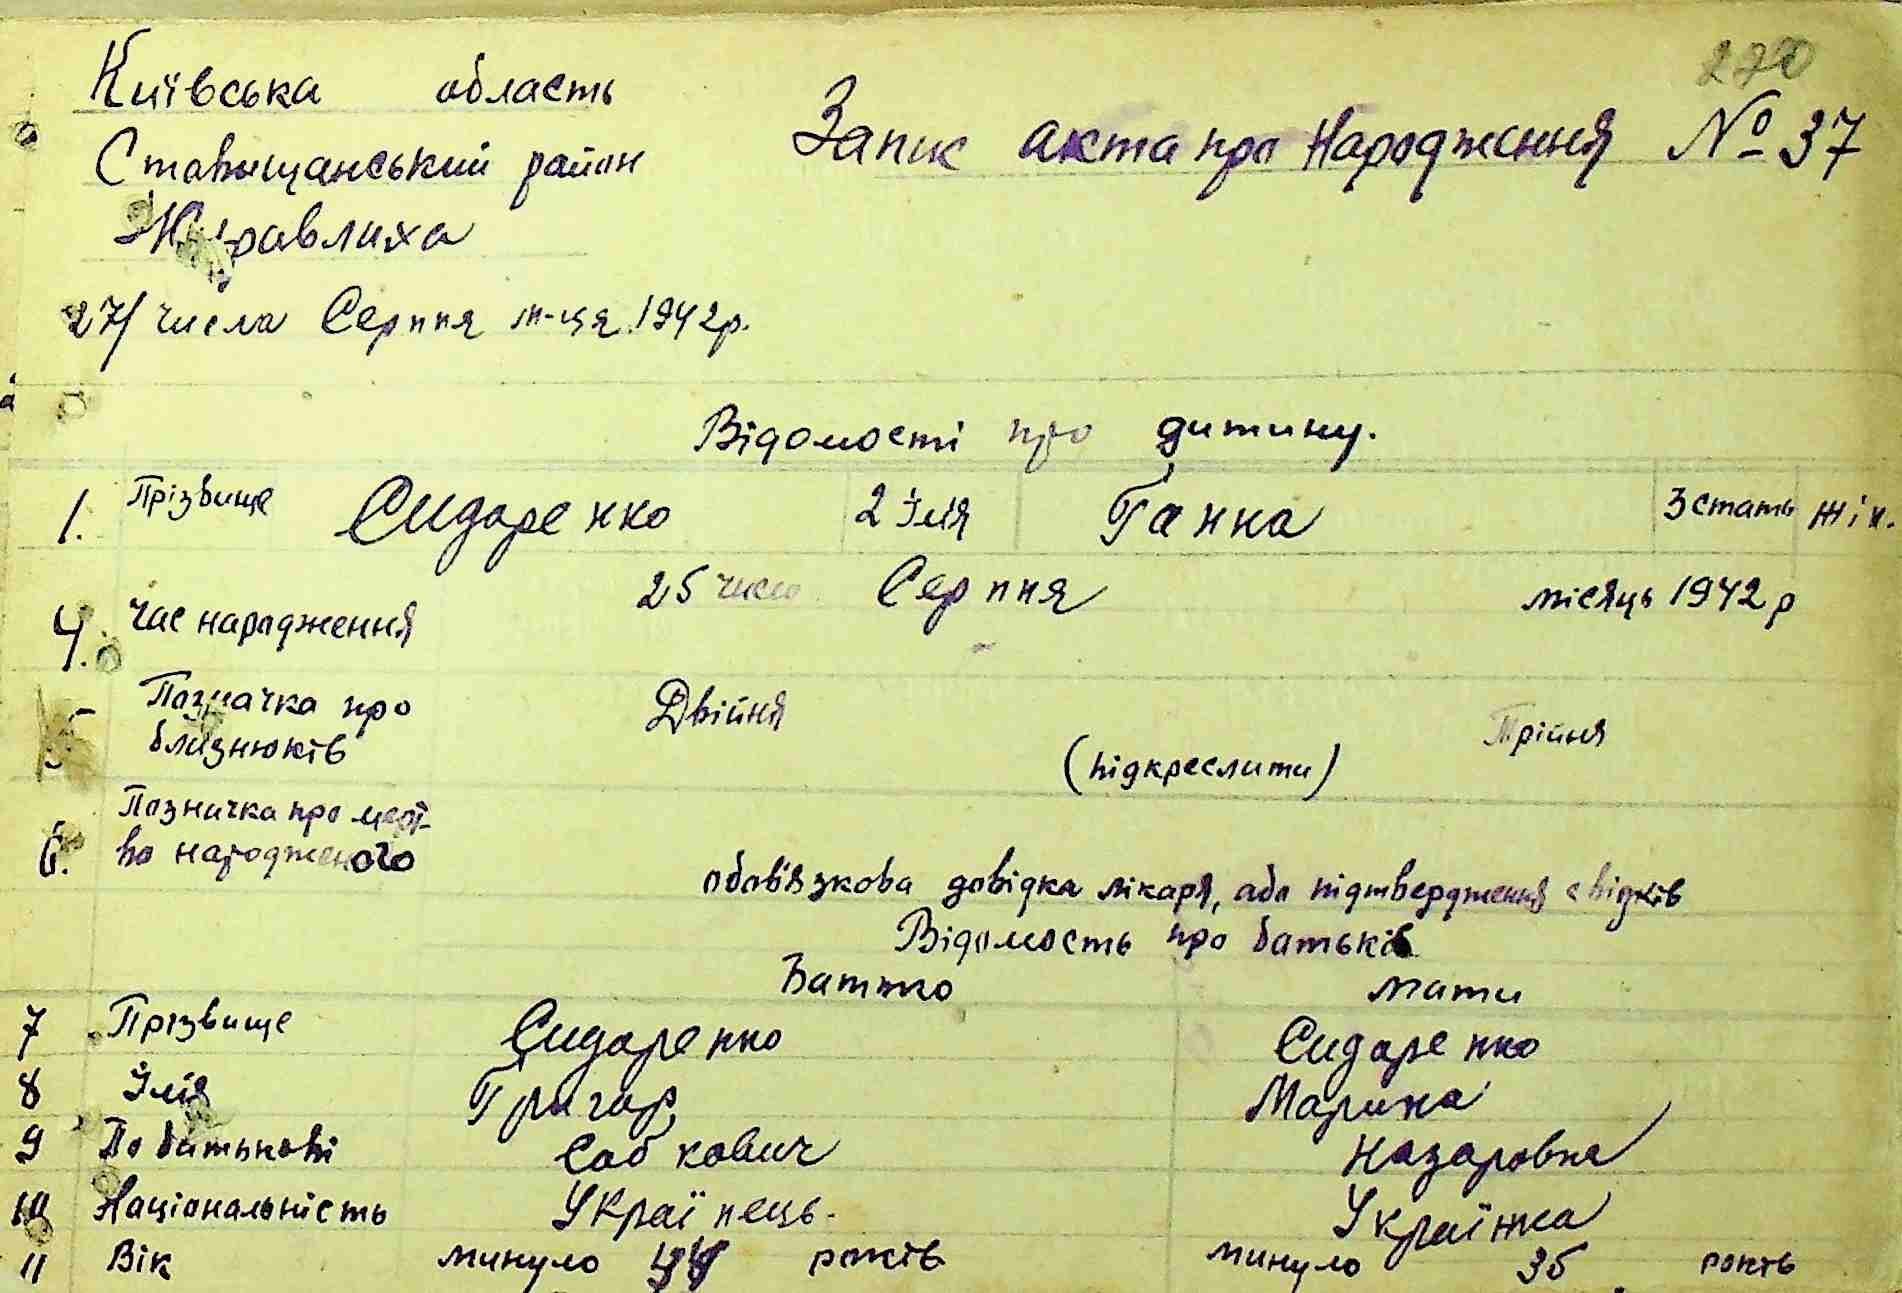 270
Київська область
Запис акта про народження № 37
Ставищанський район
Журавлиха
27/ числа Серпня м-ця 1942р.
Відомості про дитину.
1. Прізвище Сидаренко 2 Імя Ганна 3 стать жін.
4. Час народження 25 число Серпня місяць 1942 р
5 Позначка про близнюків Двійня (підкреслити) Трійня
6. Позначка про мерт-
во народженого
обов'язкова довідка лікаря, або підтвердження свідків
Відомость про батьків
Батько мати
7 Прізвище Сидаренко Сидаренко
8 Імя Григор Марина
9 По батькові Савкович Назаровна
10 Національність Українець. Українка
11 Вік минуло років минуло 36 років